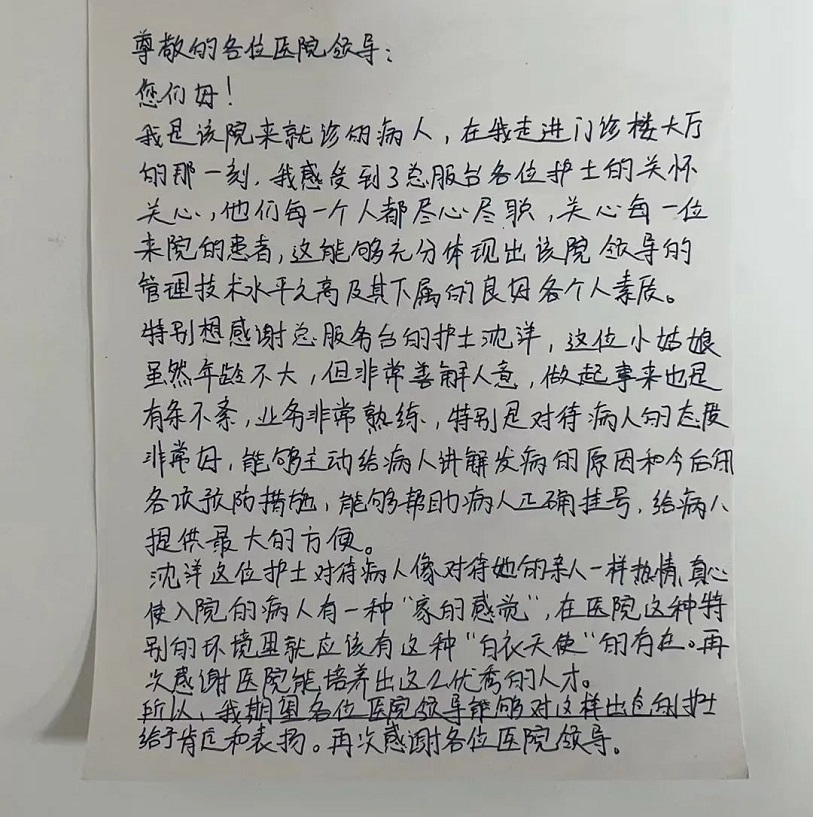 尊敬的各位医院领导：
您们好！
我是该院来就诊的病人，在我走进门诊楼大厅
的那一刻，我感受到了总服台各位护士的关怀
关心，他们每一个人都尽心尽职，关心每一位
来院的患者，这能够充分体现出该院领导的
管理技术水平之高及其下属的良好各个人素质。
特别想感谢总服务台的护士沈洋，这位小姑娘
虽然年龄不大，但非常善解人意，做起事来也是
有条不紊，业务非常熟练，特别是对待病人的态度
非常好，能够主动给病人讲解发病的原因和今后的
各项预防措施，能够帮助病人正确挂号，给病人
提供最大的方便。
沈洋这位护士对待病人像对待她的亲人一样热情、真心
使入院的病人有一种“家的感觉”，在医院这种特
别的环境里就应该有这种“白衣天使”的存在。再
次感谢医院能培养出这么优秀的人才。
所以，我期望各位医院领导能够对这样出色的护士
给予肯定和表扬。再次感谢各位医院领导。